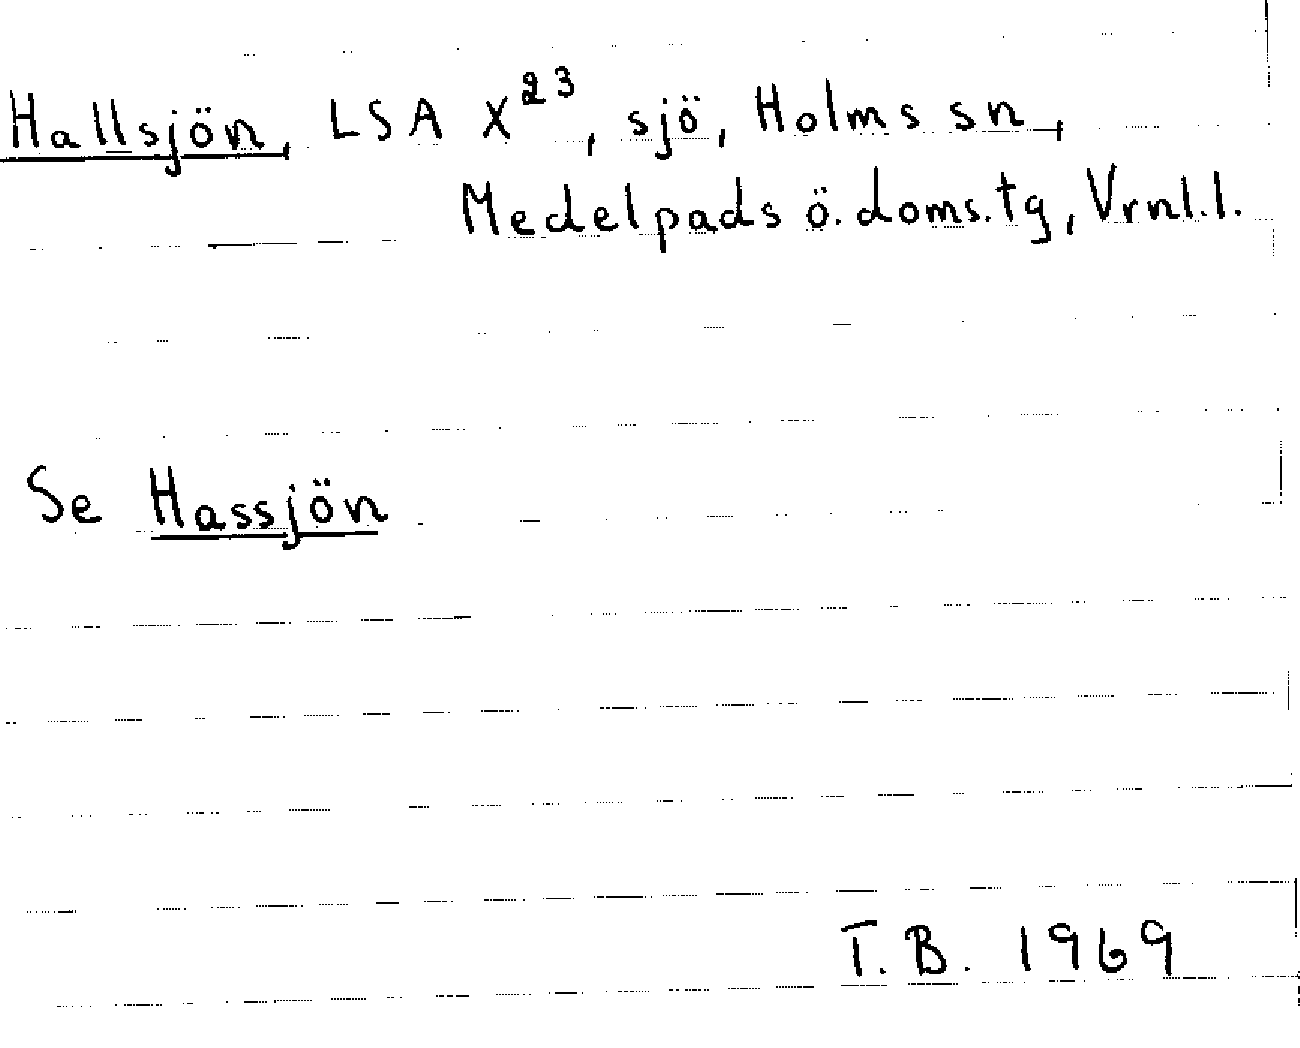 Hallsjön, LSA X²³, sjö, Holms sn,
Medelpads ö. doms.tg, Vrnl.l.
Se Hassjön
T.B. 1969